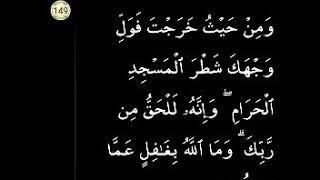 149
وَمِنْ حَيْثُ خَرَجْتَ فَوَلِّ
وَجْهَكَ شَطْرَ ٱلْمَسْجِدِ
ٱلْحَرَامِ ۖ وَإِنَّهُۥ لَلْحَقُّ مِن
رَّبِّكَ ۗ وَمَا ٱللَّهُ بِغَـٰفِلٍ عَمَّا